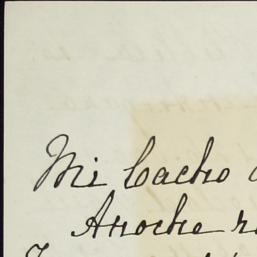 Mi Cacho
Anoche